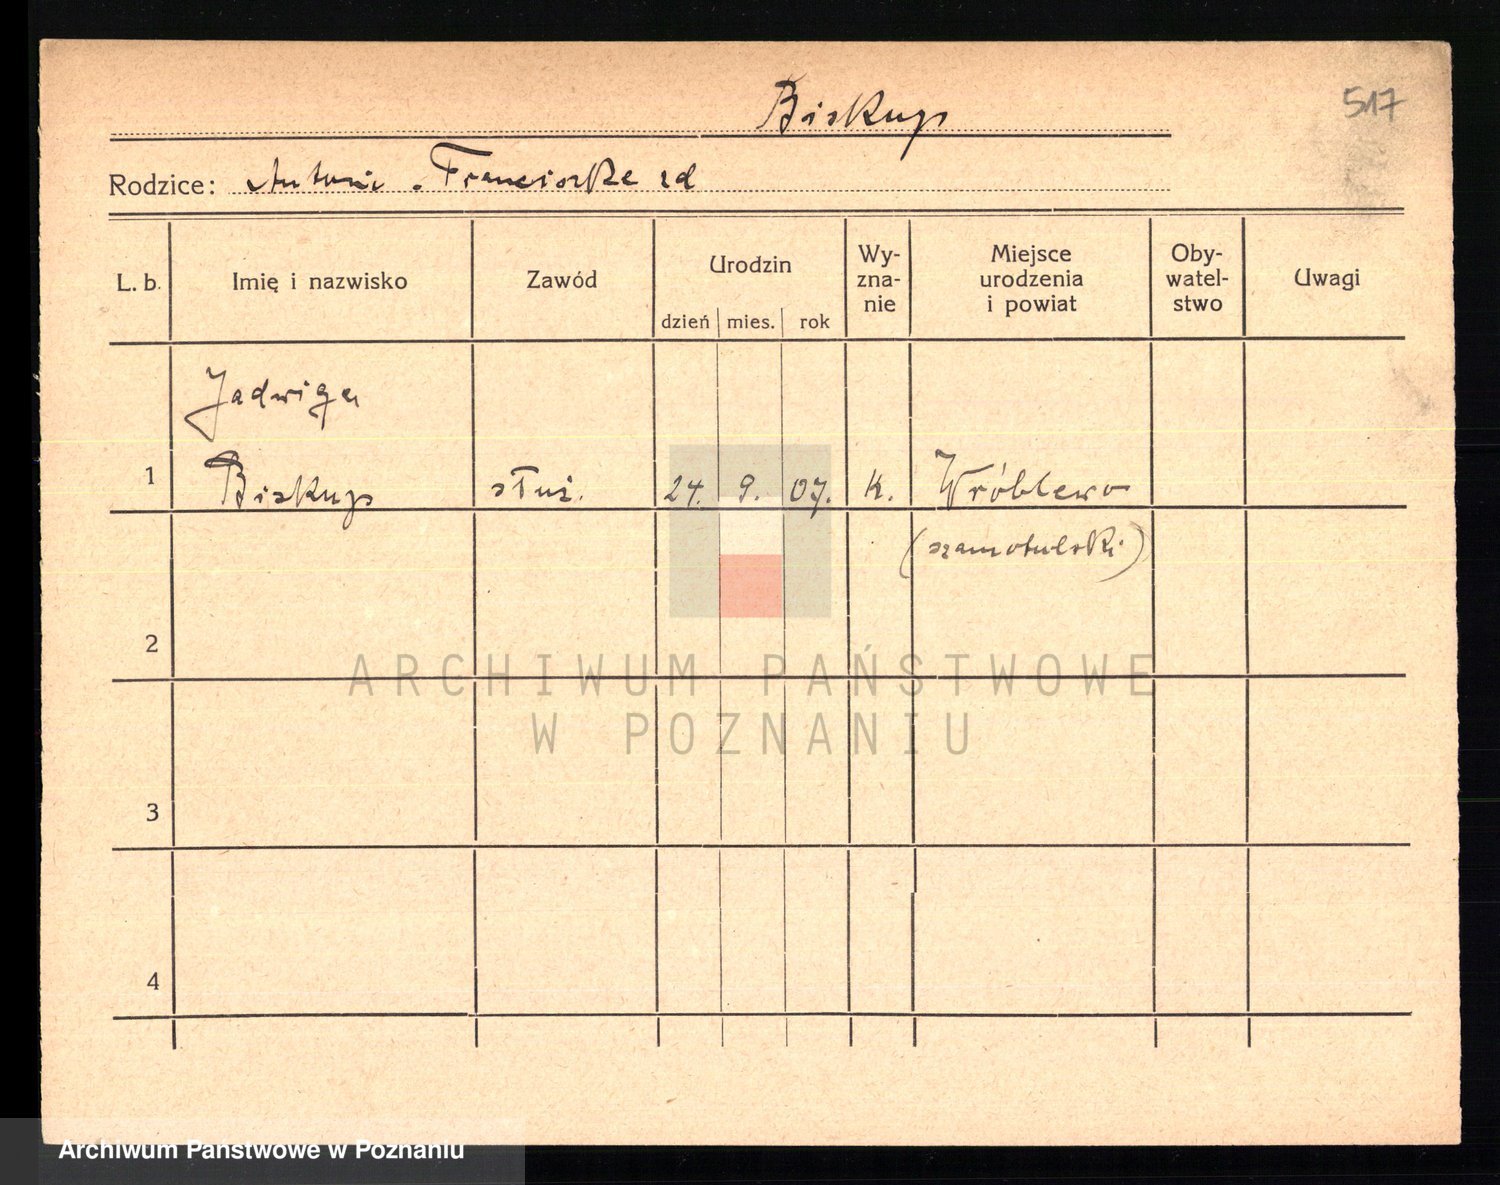 517
Biskup
Rodzice: Antoni . Franciszka zd
L. b. Imię i nazwisko Zawód Urodzin dzień mies. rok Wy-zna-nie Miejsce urodzenia i powiat Oby-watel-stwo Uwagi
Jadwiga
1 Biskup służ. 24. 9. 07. k. Wróblewo
(szamotulski)
2
ARCHIWUM PAŃSTWOWE
W POZNANIU
3
4
Archiwum Państwowe w Poznaniu